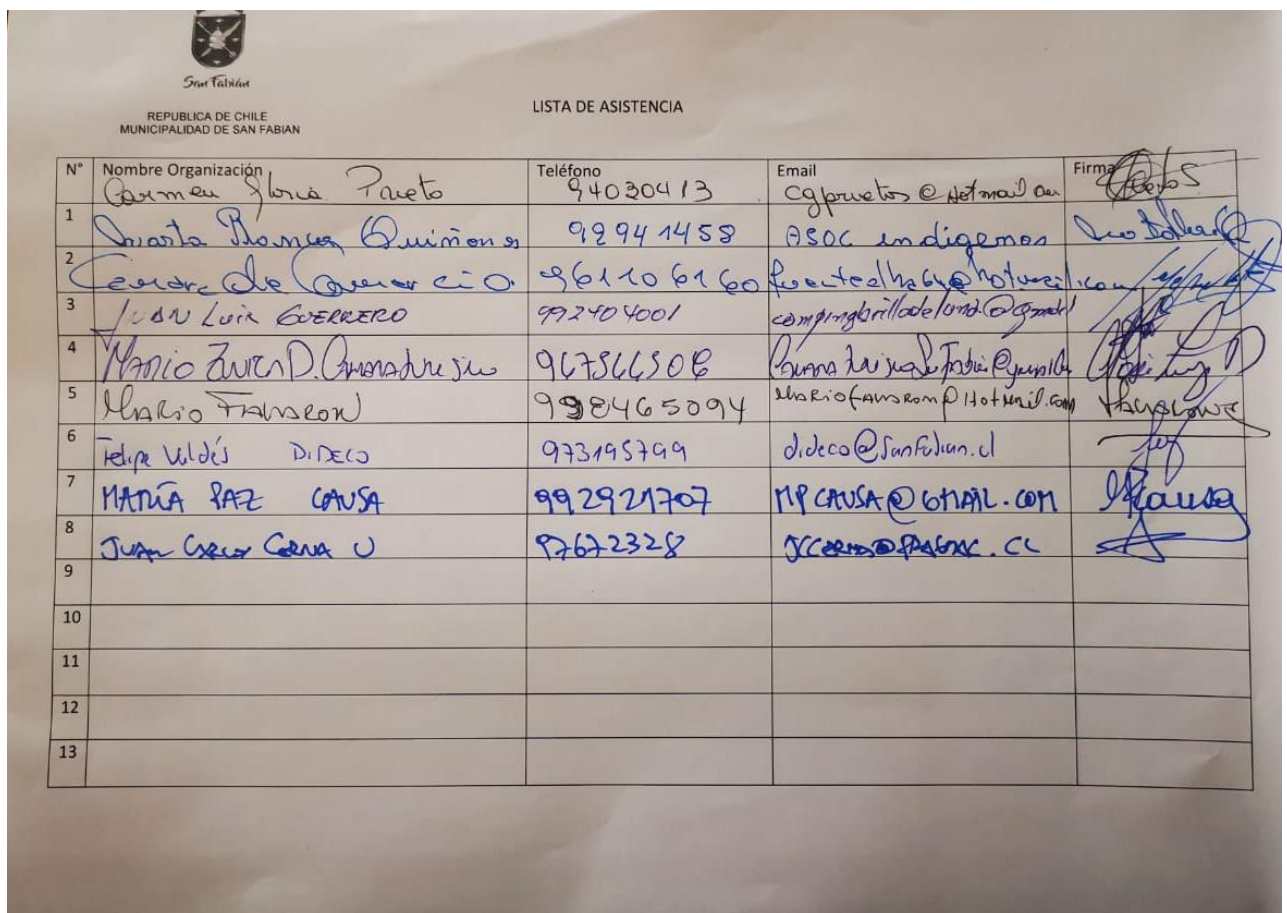 San Fabián
REPUBLICA DE CHILE
MUNICIPALIDAD DE SAN FABIAN
LISTA DE ASISTENCIA
N° Nombre Organización Teléfono Email Firma
Carmen Gloria Prieto 94030413 cgprietos@Hotmail
1 Quiñones 92941458 ASOC indigenas
2 de Comercio 961106160
3 JUAN LUIS GUERRERO 992404001
4 MARIO
5 MARIO FAVARON 998465094 MARIOFAVARON@Hotmail.com
6 Felipe Valdés DIDECO 973195799 dideco@sanfabian.cl
7 MARÍA PAZ CAUSA 992921707 MPCAUSA@GMAIL.COM MPCausa
8 JUAN CARLOS CERNA U 97672328
9
10
11
12
13